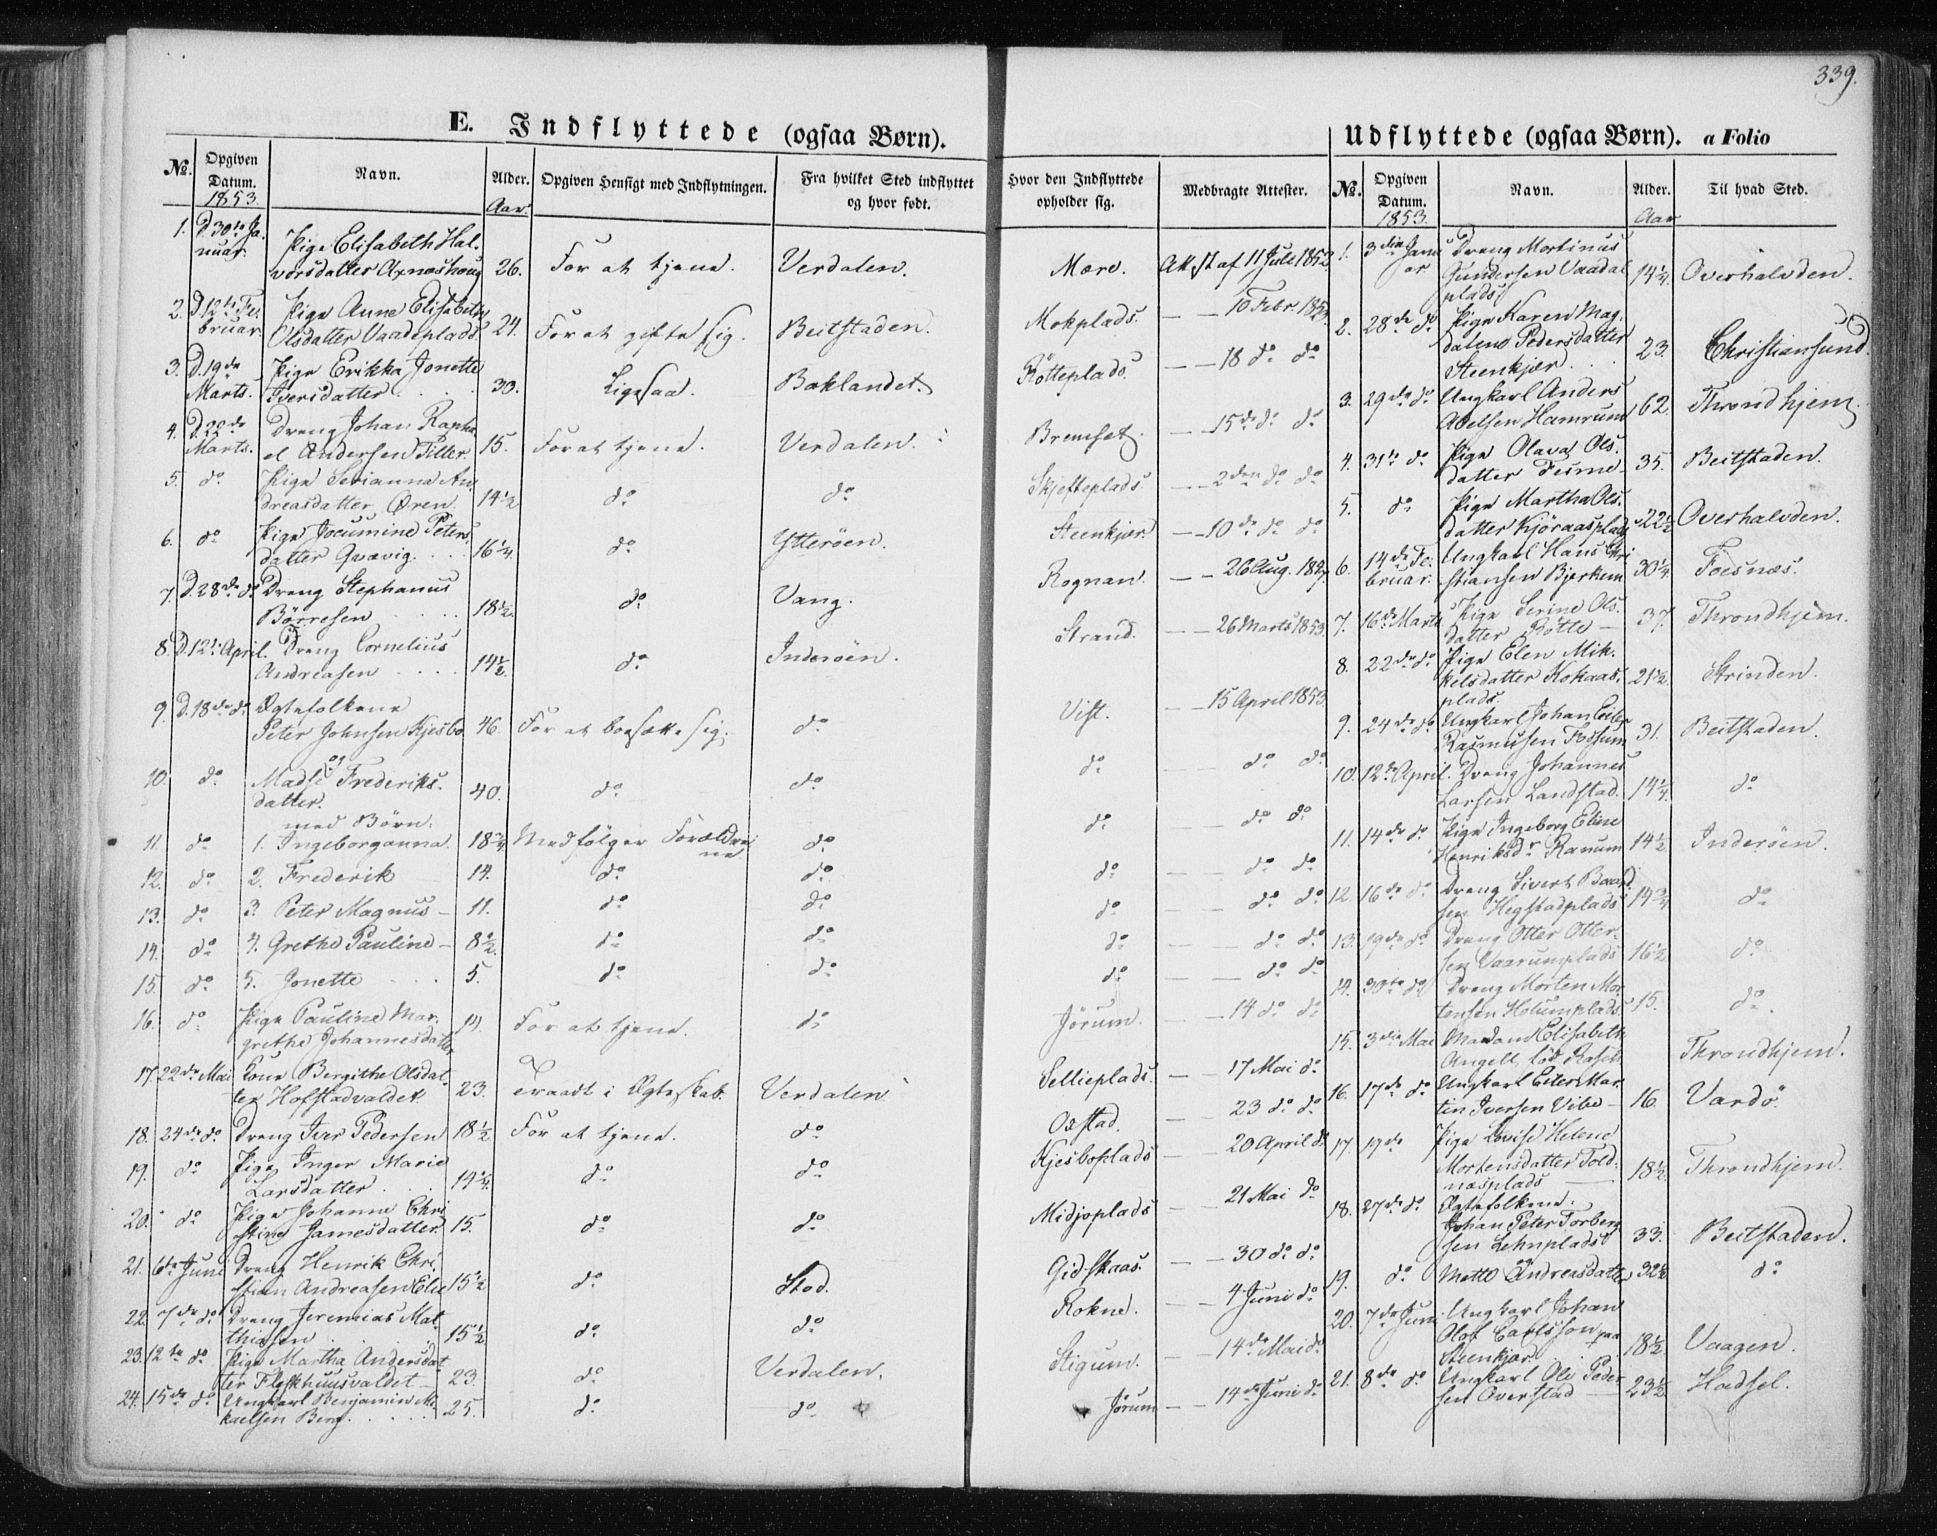 339.
E. Indflyttede (ogsaa Børn).
No. Opgiven Datum. Navn. Alder. Opgiven Hensigt med Indflytningen. Fra hvilket Sted indflyttet og hvor født. Hvor den Indflyttede opholder sig. Medbragte Attester.
1853. Aar.
1. D. 30te Ja-
nuar. Pige Elisabeth Hal-
vorsdatter Axnæshoug 26. For at tjene. Verdalen. Mære. Att:st af 11 Juli 1852
2. D. 12te Fe-
bruar. Pige Anne Elisabeth
Olsdatter Vaadeplads 24. For at gifte sig. Beitstaden. Mokplads. — — 10 Febr. 1853.
3. D. 19de
Marts. Pige Erikka Jonette
Iversdatter . . . . 30. Ligesaa Baklandet. Rötteplads. — — 18 do do
4. D. 22de
Marts. Dreng Johan Rapha-
el Andersen Tiller. 15. For at tjene. Verdalen. Bremset. — — 15de do do
5. do Pige Serianna An-
dreasdatter Ören. 14½ do do Skjefteplads — — 2den do do
6. do Pige Jocumine Peters-
datter Qvævig. . . . 16¼. do Ytteröen. Steenkjær. — — 10de do do
7. D. 28de do Dreng Stephanus
Börresen . . . 18½. do Vang. Rognan. — — 26 Aug. 18
8. D. 12te April. Dreng Cornelius
Andreasen . . . . 14½. do Inderöen. Strand. — — 26 Marts 1853.
9. D. 18de do Ægtefolkene
Peter Johnsen Kjesbo 46. For at bosætte sig. do Vist. — — 15 April 1853
og
10. do Madse Frederiks-
datter. 40. do do do — do do
med Børn:
11 do 1. Ingeborganna. 18¾ Medfölger Forældre-
ne do do — — do do
12. do 2. Frederik — 14. do do do — — do do
13. do 3. Peter Magnus — 11. do do do — — do do
14. do 4. Grethe Pauline — 8½. do do do — — do do
15. do 5. Jonette . . . 5. do do do — — do do
16. do Pige Pauline Mar-
grethe Johannesdatter 14. For at tjene. do Jörum. — — 14 do do
17. 22de Mai Kone Bergithe Olsdat-
ter Hofstadvaldet 23. traadt i Ægteskab. Verdalen Sellieplads. — — 17 Mai do
18. 24de do Dreng Iver Pedersen 18½ For at tjene. do Oxstad. — 23 do do
19. do Pige Inger Marie
Larsdatter . . . . 14¼. do do Kjesboplads — — 20 April do
20. do Pige Johanne Chri-
stine Jamesdatter 15. do do Midjoplads — — 21 Mai do
21. 6te Juni Dreng Henrik Chri-
stian Andreasen Elie 15½ do Stod. Gidskaas. — — 30 do do
22. 7de do Dreng Jeremias Mat-
thiasen . . . 15½ do do Rokne. — — 4 Juni do
23. 12te do Pige Martha Andersdat-
ter Fleskhuusvaldet — 23. do Verdalen. Stigum. — — 14de Mai do
24. 15de do Ungkarl Benjamin Mi-
kaelsen Berg . . . . 25. do do Jörum — — 14de Juni do
Udflyttede (ogsaa Børn). a Folio
No. Opgiven Datum. Navn. Alder. Til hvad Sted.
1853. Aar
1. 3die Janu-
ar Dreng Mortinus
Gundersen Vaadal-
plads 14¼ Overhalvden.
2. 28de do Pige Karen Mag-
dalene Pedersdatter
Steenkjær . . . 23. Christiansund.
3. 29de do Ungkarl Anders
Adelsen Hamrum 62. Throndhjem.
4. 31te do Pige Olava Ols-
datter Fesme 35. Beitstaden.
5. do Pige Martha Ols-
datter Kjöraasplads 22½ Overhalvden.
6. 14de Fe-
bruar. Ungkarl Hans Chri-
stiansen Bjerkem 30¼ Foesnæs.
7. 16de Marts Pige Serine Ols-
datter Rötte — 37. Throndhjem.
8. 22de do Pige Elen Mik-
kelsdatter Kokaas-
plads. 21½. Strinden.
9. 24de do Ungkarl Johan Eiler
Rasmusen Fossum. 31. Beitstaden.
10. 12te April. Dreng Johannes
Larsen Landstad. 14¼. do
11. 14de do Pige Ingeborg Eline
Henriksdr Ranum 14½ Inderöen.
12. 16de do Dreng Sivert Baard-
sen Hegstadplads 14¾ do
13. 19de do Dreng Otter Otter-
sen Vaarumplads 16½ do
14. 30te do Dreng Morten Mor-
tensen Holumplads. 15. do.
15. 3die Mai Madam Elisabeth
Angell, föd Throndhjem.
16. 17de do Ungkarl Peter Mar-
tin Iversen Vibe — 16. Vardö.
17. 19de Pige Lovise Helene
Mortensdatter Told-
næsplads — 18½. Throndhjem.
18. 27de do Ægtefolkene.
Johan Peter Torberg-
sen Lehnplads 33. Beitstaden.
og
19. do Mette Andreasdatter 32½ do
20. 7de Juni Ungkarl Johan
Olof Carlsson paa
Steenkjær. . . . 18½ Vaagen.
21. 8de do Ungkarl Ole Peder-
sen Overstad — 23½ Hadsel.